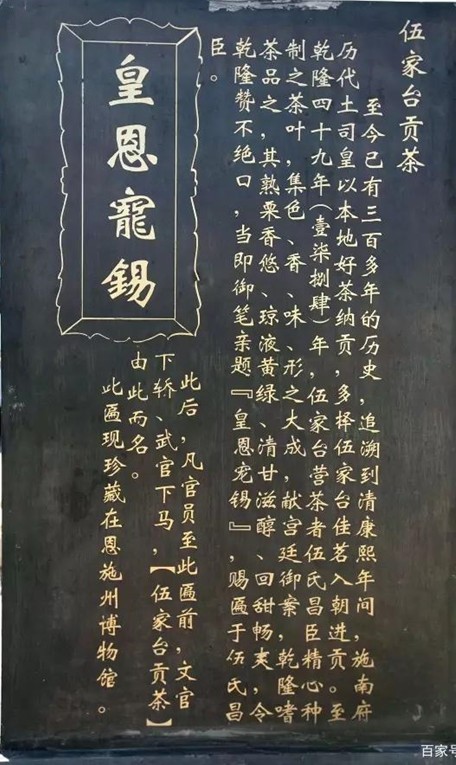 伍家台贡茶
至今已有三百多年的历史，追溯到清康熙年间，施南府
历代土司皇以本地好茶纳贡，多择伍家台佳茗入朝进贡。至
乾隆四十九年（壹柒捌肆）年，伍家台营茶者伍氏昌臣精心种
制之茶叶，集色、香、味、形之大成，献宫廷御案，乾隆嗜
茶品之，其熟栗香悠、琼液黄绿、清甘滋醇、回甜畅爽，令
乾隆赞不绝口，当即御笔亲题『皇恩宠锡』，赐匾于伍氏昌
臣。
皇恩寵錫
此后，凡官员至此匾前，文官
下轿、武官下马，【伍家台贡茶】
由此而名。
此匾现珍藏在恩施州博物馆。
百家号